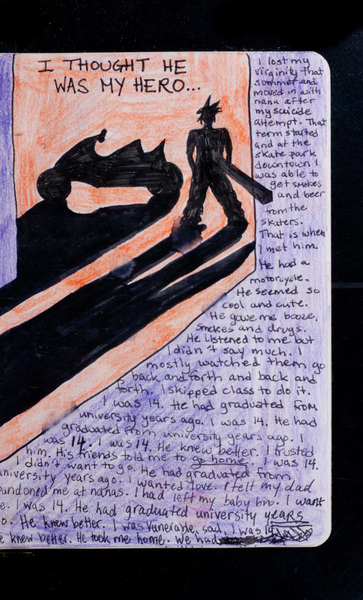 I THOUGHT HE
WAS MY HERO...
I lost my
virginity that
summer and
moved in with
nana after
my suicide
attempt. That
term started
and at the
skate park
downtown I
was able to
get smokes
and beer
from the
skaters.
That is when
I met him.
He had a
motorcycle.
He seemed so
cool and cute.
He gave me booze,
smokes and drugs.
He listened to me but
I didn't say much. I
mostly watched them go
back and forth and back and
forth. I skipped class to do it.
I was 14. He had graduated from
university years ago. I was 14. He had
graduated from university years ago. I
was 14. I was 14. He knew better. I trusted
him. His friends told me to go home. I was 14.
I didn't want to go. He had graduated from
university years ago. I wanted love. I felt my dad
abandoned me at nanas. I had left my baby bro. I want
e. I was 14. He had graduated university years
o. He knew better. I was vunerable, sad. I was 14
e knew better. He took me home. We had